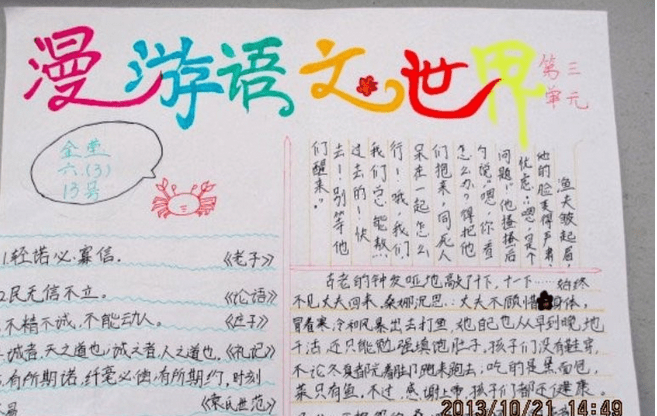 漫游语文世界
第三
单元
金堂
六.(3)
13号
渔夫皱起眉,
他的脸变得严肃,
忧虑。“嗯,是个
问题!”他搔搔后
勺说:“嗯,你看
怎么办?得把他
们抱来,同死人
呆在一起怎么
行!哦,我们,我们
我们总能熬
过去的!快
去!别等他
们醒来。”
1.轻诺必寡信. 《老子》
2.民无信不立. 《论语》
不精不诚,不能动人. 《庄子》
诚者,天之道也;诚之者,人之道也. 《礼记》
有所期诺,纤毫必偿;有所期约,时刻
《袁氏世范》
古老的钟发哑地敲了十下,十一下……始终
不见丈夫回来.桑娜沉思:丈夫不顾惜身体,
冒着寒冷和风暴出去打鱼,她自己也从早到晚地
干活,还只能勉强填饱肚子,孩子们没有鞋穿,
不论冬夏都光着脚跑来跑去;吃的是黑面包,
菜只有鱼.不过,感谢上帝,孩子们都还健康.
2013/10/21 14:49